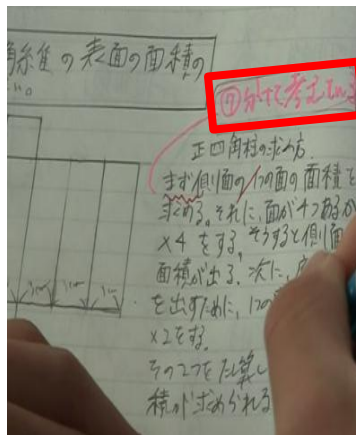 の表面の面積の
の。
⑦分けて考えている
正四角柱の求め方
まず側面の1つの面の面積を
求める。それに、面が4つあるか
×4をする。そうすると側面
面積が出る。次に、底
を出すために、1つの
×2をする。
その2つをたし算し
積が求められる